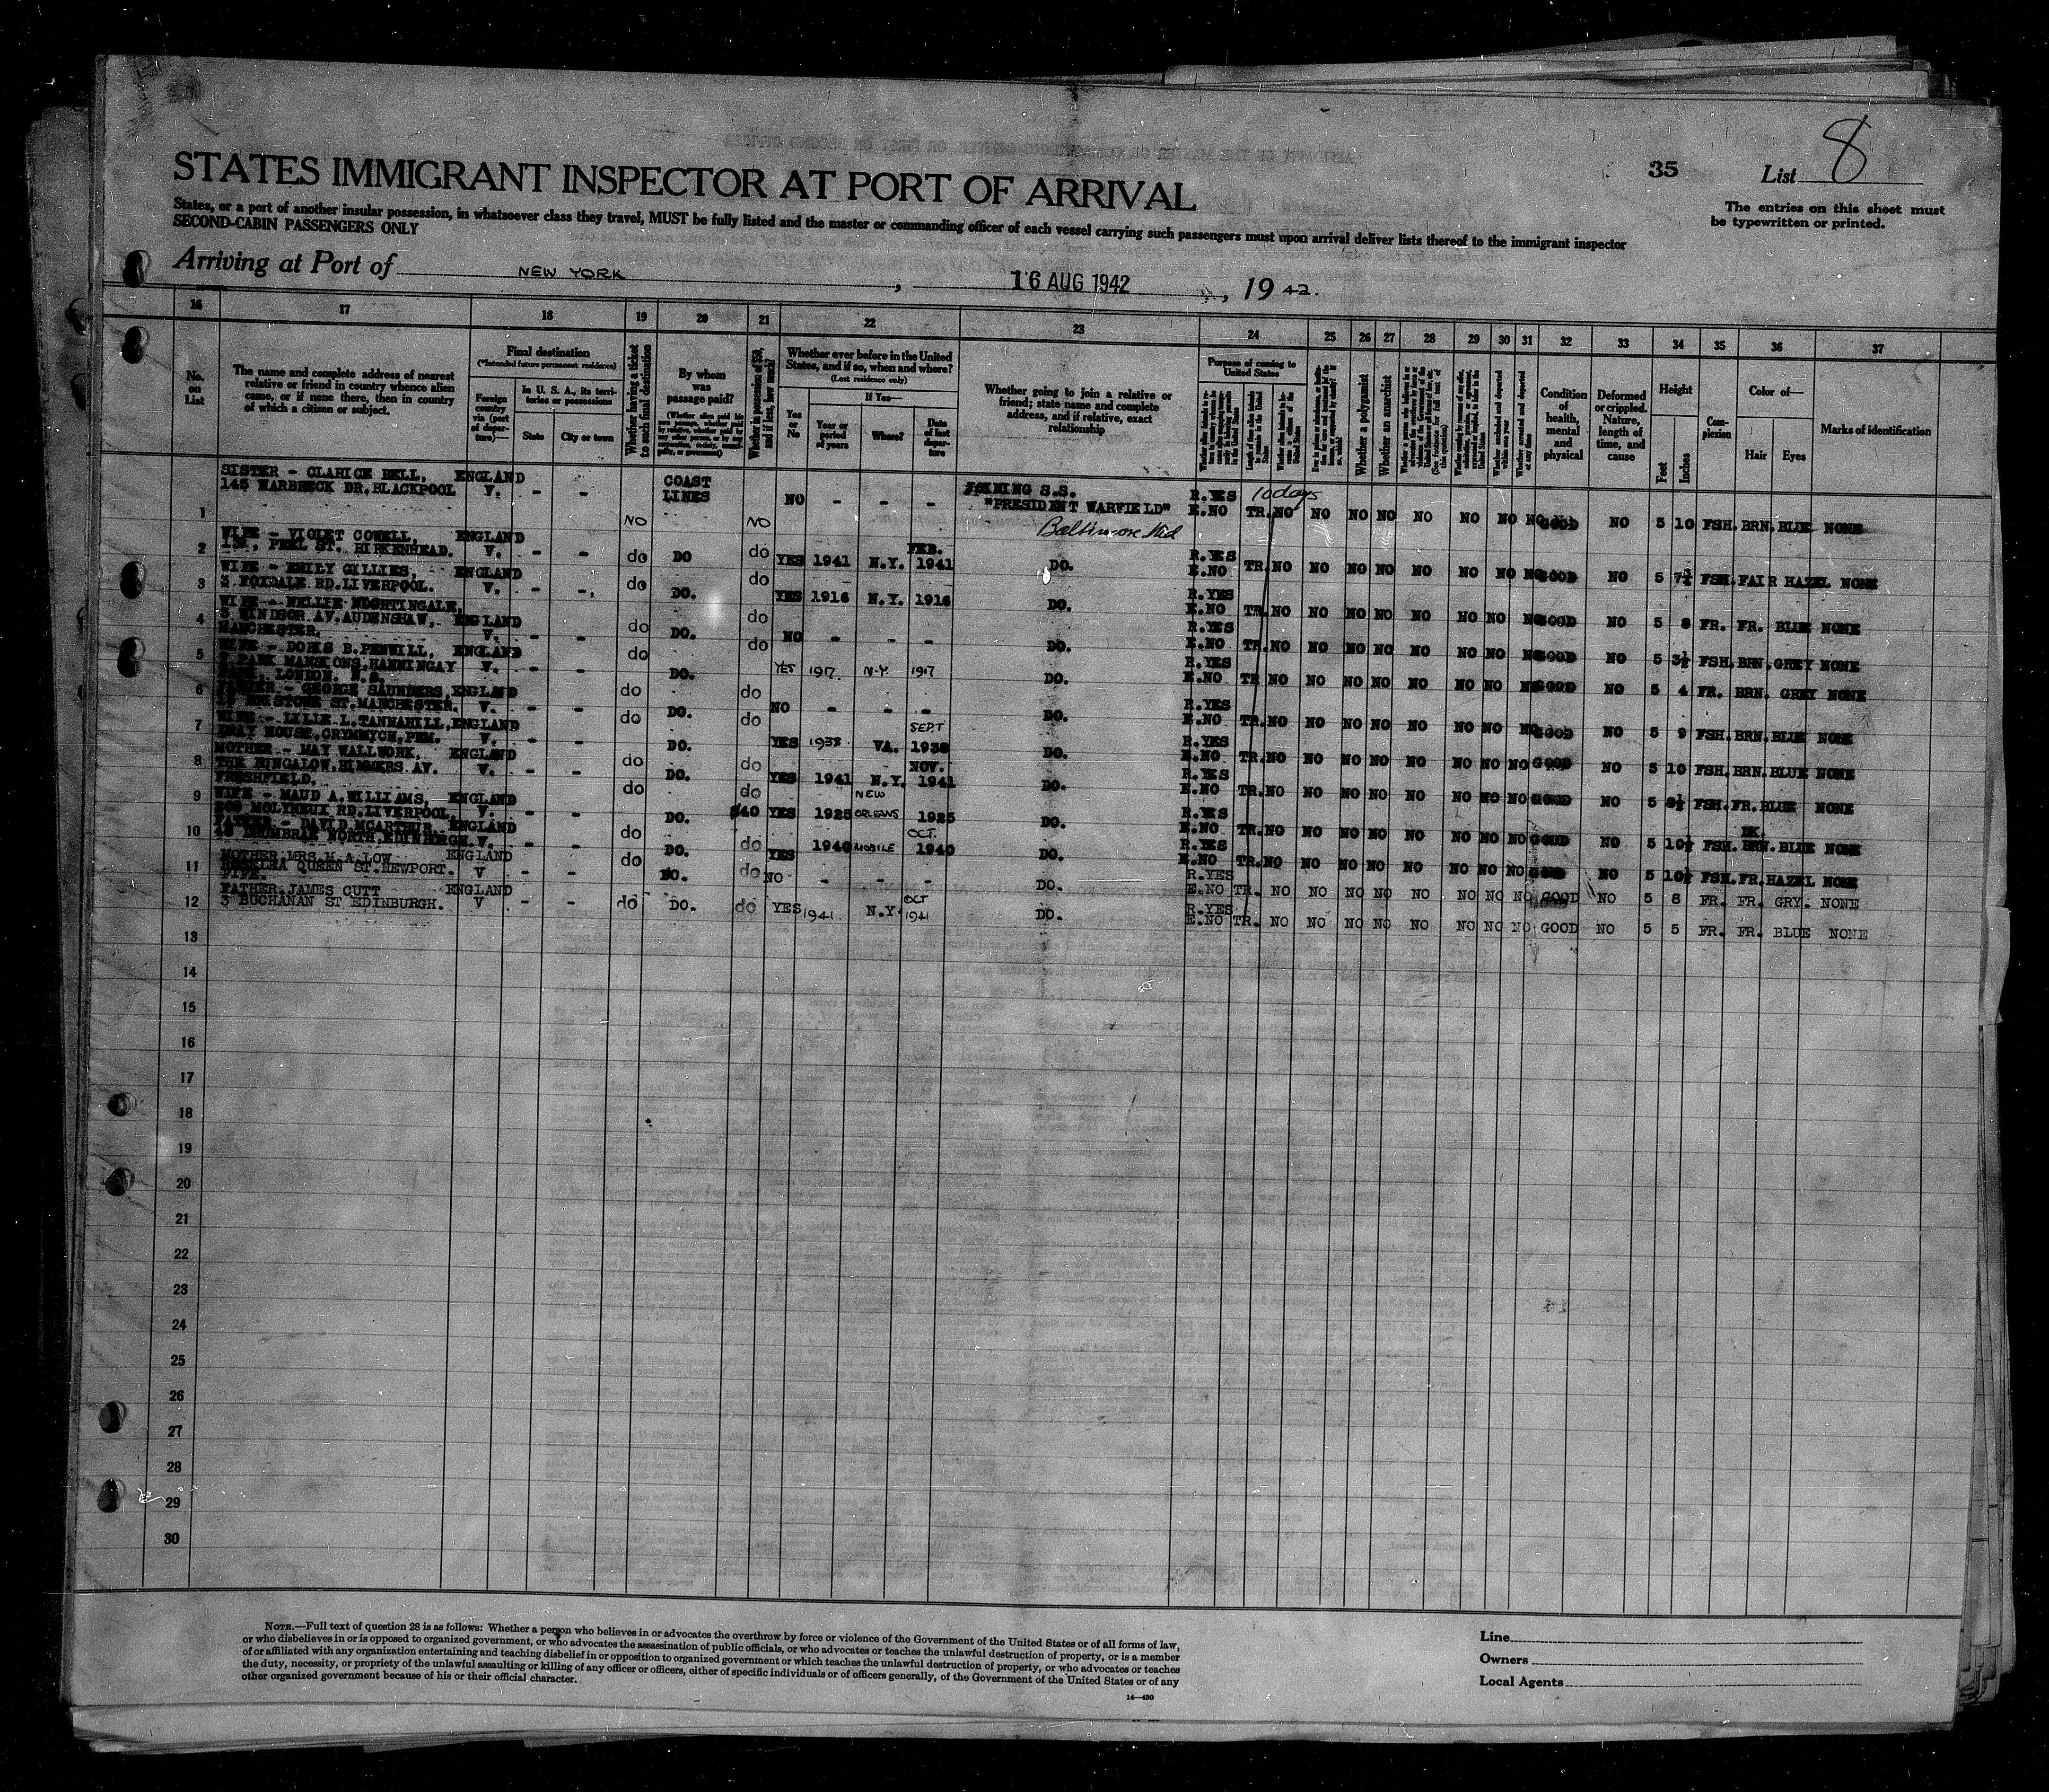 35
List 8
STATES IMMIGRANT INSPECTOR AT PORT OF ARRIVAL
The entries on this sheet must
be typewritten or printed.
States, or a port of another insular possession, in whatsoever class they travel, MUST be fully listed and the master or commanding officer of each vessel carrying such passengers must upon arrival deliver lists thereof to the immigrant inspector
SECOND-CABIN PASSENGERS ONLY
Arriving at Port of NEW YORK, 16 AUG 1942, 1942.
16 17 18 19 20 21 22 23 24 25 26 27 28 29 30 31 32 33 34 35 36 37
No. on List
The name and complete address of nearest relative or friend in country whence alien came, or if none there, then in country of which a citizen or subject.
Final destination
(*Intended future permanent residence)
Foreign country via (port of departure)—
In U. S. A., its territories or possessions
State
City or town
Whether having a ticket to such final destination
By whom was passage paid?
Whether in possession of $50, and if less, how much?
Whether ever before in the United States, and if so, when and where?
(Last residence only)
Yes or No
If Yes—
Year or period of years
Where?
Date of last departure
Whether going to join a relative or friend; state name and complete address, and if relative, exact relationship
Purpose of coming to United States
Whether a polygamist
Whether an anarchist
Condition of health, mental and physical
Deformed or crippled. Nature, length of time, and cause
Height
Feet
Inches
Complexion
Color of—
Hair
Eyes
Marks of identification
SISTER - CLARICE BELL, ENGLAND COAST JOINING S.S. R.YES 10 days
145 WARBRECK DR. BLACKPOOL V. - - LINES NO - - - "PRESIDENT WARFIELD" E.NO TR.NO NO NO NO NO NO NO NO GOOD NO 5 10 FSH. BRN. BLUE NONE
1 NO NO Baltimore Md
WIFE - VIOLET COWELL, ENGLAND FEB. R.YES
PEEL ST. BIRKENHEAD. V. - - do DO do YES 1941 N.Y. 1941 DO. E.NO TR.NO NO NO NO NO NO NO NO GOOD NO 5 7½ FSH. FAIR HAZEL NONE
2
WIFE - EMILY GILLIES, ENGLAND R.YES
3 FOXDALE RD. LIVERPOOL. V. - - do DO. do YES 1916 N.Y. 1916 DO. E.NO TR.NO NO NO NO NO NO NO NO GOOD NO 5 8 FR. FR. BLUE NONE
3
WIFE - NELLIE NIGHTINGALE,
3 WINDSOR AV. AUDENSHAW, ENGLAND R.YES
MANCHESTER. V. - - do DO. do NO - - - DO. E.NO TR.NO NO NO NO NO NO NO NO GOOD NO 5 3½ FSH. BRN. GREY NONE
4
WIFE - DORIS B. PENWILL, ENGLAND
PARK MANSIONS, V. - - do DO. do YES 1917. N.Y. 1917 DO. R.YES E.NO TR NO NO NO NO NO NO NO NO GOOD NO 5 4 FR. BRN. GREY NONE
LONDON. N.8.
5
GEORGE SAUNDERS, ENGLAND
ST. MANCHESTER. V. - - do DO. do NO - - - DO. R.YES E.NO TR.NO NO NO NO NO NO NO NO GOOD NO 5 9 FSH. BRN. BLUE NONE
6
WIFE - LILLIE L. TANNAHILL, ENGLAND SEPT
HOUSE, CRYMMYCH, PEM. V. - - do DO. do YES 1938. VA. 1938 DO. R.YES E.NO TR.NO NO NO NO NO NO NO NO GOOD NO 5 10 FSH. BRN. BLUE NONE
7
MOTHER - MAY WALLWORK, ENGLAND NOV.
THE BUNGALOW, AV. V. - - do DO. do YES 1941 N.Y. 1941 DO. R.YES E.NO TR.NO NO NO NO NO NO NO NO GOOD NO 5 8½ FSH. FR. BLUE NONE
FRESHFIELD.
8
WIFE - MAUD A. WILLIAMS, ENGLAND NEW
MOLYNEUX RD. LIVERPOOL, V. - - do DO. $40 YES 1925 ORLEANS 1925 DO. R.YES E.NO TR.NO NO NO NO NO NO NO NO GOOD NO 5 10½ FSH. DK. BRN. BLUE NONE
9
FATHER - DAVID MCARTHUR, ENGLAND OCT.
NORTH, EDINBURGH. V. - - do DO. do YES 1940 MOBILE 1940 DO. R.YES E.NO TR.NO NO NO NO NO NO NO NO GOOD NO 5 10½ FSH. FR. HAZEL NONE
10
MOTHER MRS. M.A. LOW ENGLAND
QUEEN ST. NEWPORT. V - - do DO. do NO - - - DO. R.YES E.NO TR. NO NO NO NO NO NO NO NO GOOD NO 5 8 FR. FR. GRY. NONE
FIFE.
11
FATHER JAMES CUTT ENGLAND OCT
3 BUCHANAN ST EDINBURGH. V - - do DO. do YES 1941. N.Y. 1941 DO. R.YES E.NO TR. NO NO NO NO NO NO NO NO GOOD NO 5 5 FR. FR. BLUE NONE
12
13
14
15
16
17
18
19
20
21
22
23
24
25
26
27
28
29
30
NOTE.—Full text of question 28 is as follows: Whether a person who believes in or advocates the overthrow by force or violence of the Government of the United States or of all forms of law,
or who disbelieves in or is opposed to organized government, or who advocates the assassination of public officials, or who advocates or teaches the unlawful destruction of property, or is a member
of or affiliated with any organization entertaining and teaching disbelief in or opposition to organized government or which teaches the unlawful destruction of property, or who advocates or teaches
the duty, necessity, or propriety of the unlawful assaulting or killing of any officer or officers, either of specific individuals or of officers generally, of the Government of the United States or of any
other organized government because of his or their official character.
14—430
Line
Owners
Local Agents